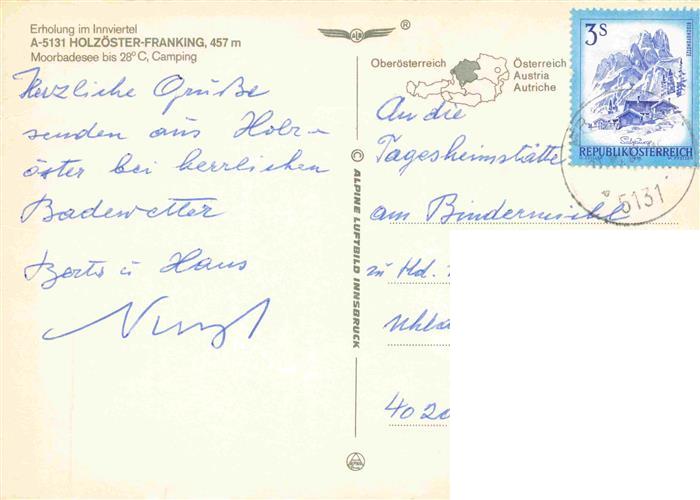 Erholung im Innviertel
A-5131 HOLZÖSTER-FRANKING, 457 m
Moorbadesee bis 28°C, Camping
Herzliche Grüße
senden aus Holz-
öster bei herrlichen
Badewetter
Berta u Hans
ALR
®
Oberösterreich
Österreich
Austria
Autriche
© ALPINE LUFTBILD INNSBRUCK
3S
BISCHOFSMÜTZE
Salzburg
REPUBLIK ÖSTERREICH
5131
An die
Tagesheimstätte
am Bindermichl
zu Hd.
4020